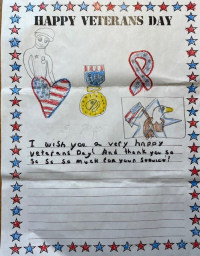 HAPPY VETERANS DAY
I wish you a very happy
veterans Day! And thank you so
So So So much for your Service!